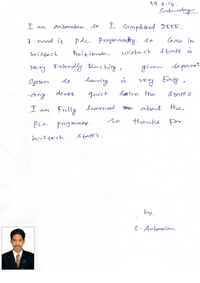 19.4.14.
Saturday
I am Anbarasan so I completed DEEE.
I need it PLC programing so came in
Wistech Institution Wistech staff is
very friendly teaching, given separate
system so learing is very easy,
any doubt quick solve the staffs
I am fully learned about the
PLC programe. So thanks for
Wistech staffs.
by,
S. Anbarasan